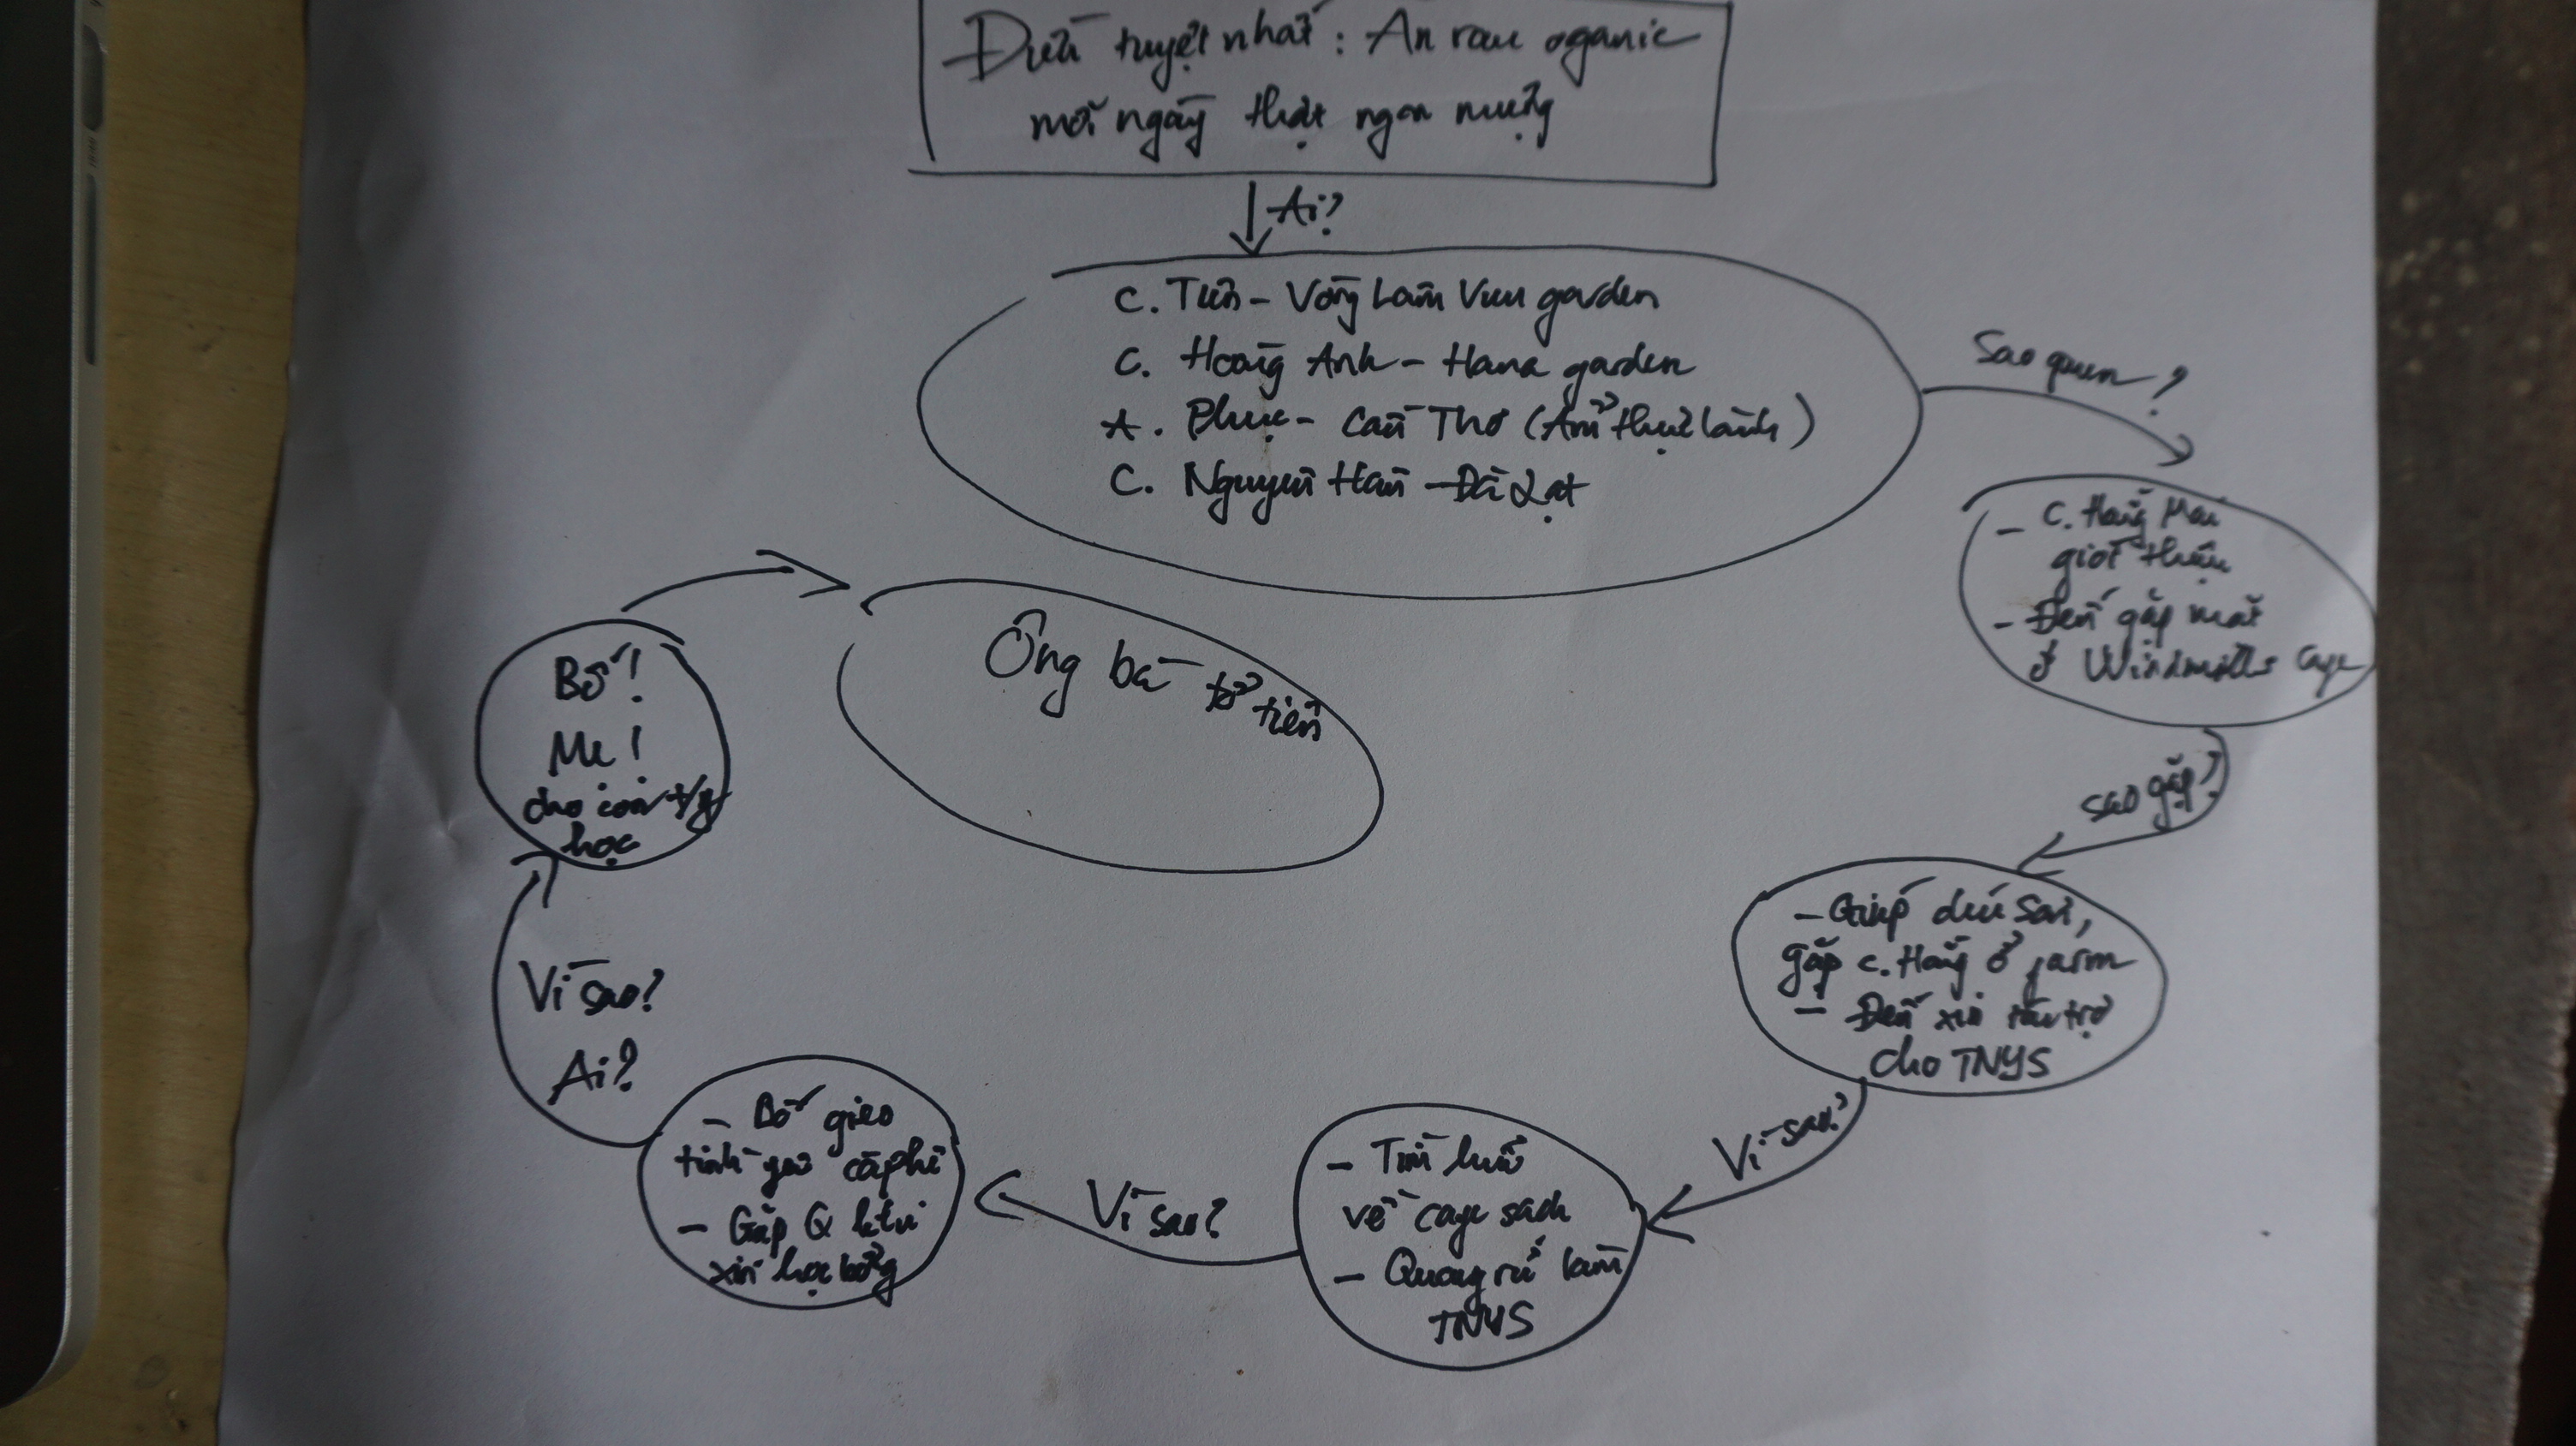 Điều tuyệt nhất: Ăn rau oganic
mỗi ngày thật ngon miệng
Ai?
C. Tiên - Vâng Lâm Viên garden
C. Hoàng Anh - Hana garden
A. Phục - Cần Thơ (Ẩm thực lành)
C. Nguyên Hân - Đà Lạt
Sao quen?
- C. Hằng Mai
giới thiệu
- Đến gặp mặt
ở Windmills Cafe
Sao gặp?
- Giúp đưa Sori,
gặp c. Hằng ở farm
- Đến xin tài trợ
cho TNYS
Vì sao?
- Tìm hiểu
về cafe sách
- Quang rủ làm
TNYS
Vì sao?
- Bố gieo
tình yêu cà phê
- Gặp Q khi
xin học bổng
Vì sao?
Ai?
Bố!
Mẹ!
cho con
học
Ông bà tổ tiên